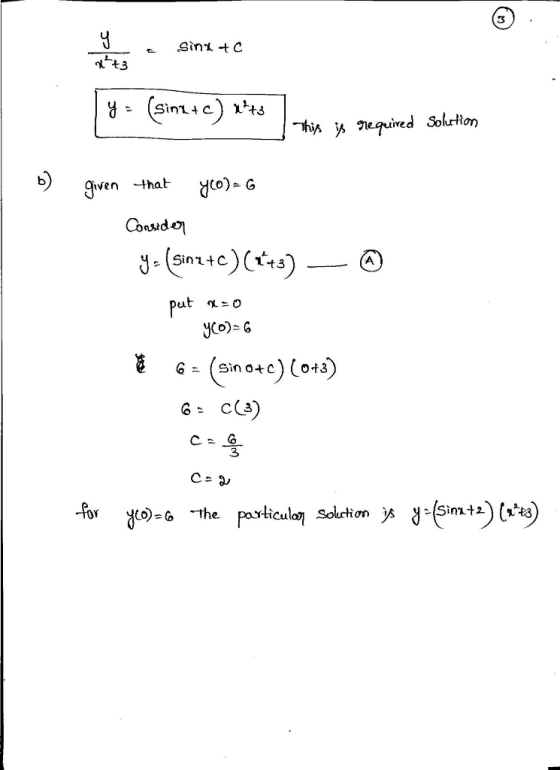 3
y/(x²+3) = sinx + c
y = (sinx+c) x²+3 This is required Solution
b) given that y(0)=6
Consider
y=(sinx+c)(x²+3) —— A
put x=0
y(0)=6
6 = (sin0+c)(0+3)
6 = C(3)
C = 6/3
C = 2
for y(0)=6 The particular solution is y=(sinx+2)(x²+3)